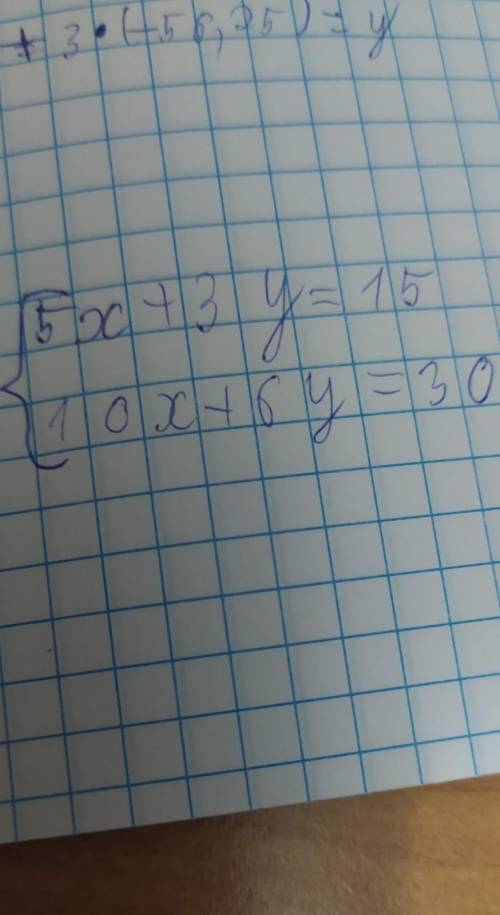 + 3 · (-56,25) = y
5x + 3y = 15
10x + 6y = 30